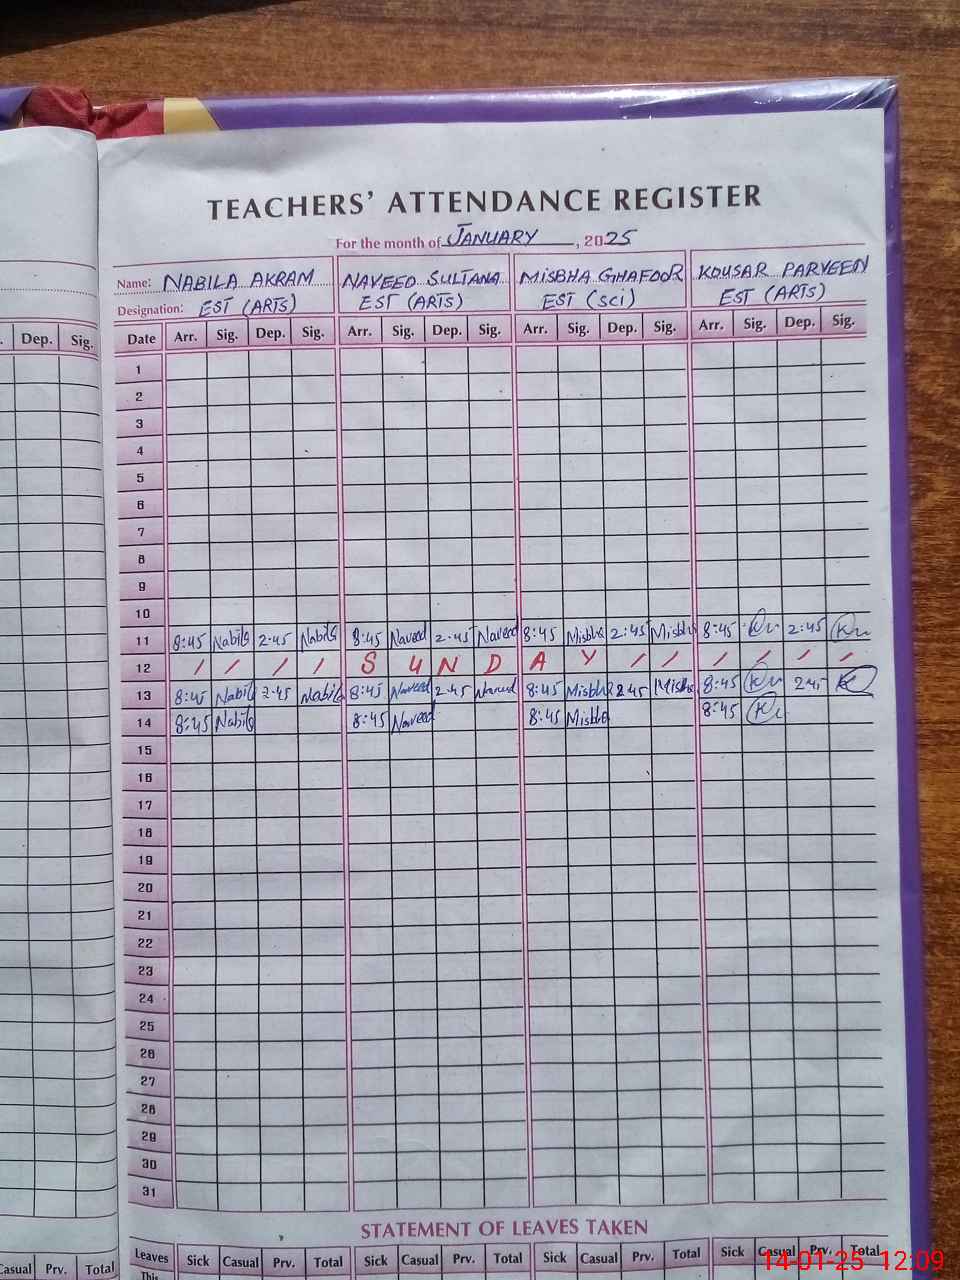 TEACHERS' ATTENDANCE REGISTER
For the month of JANUARY, 2025
Name: NABILA AKRAM NAVEED SULTANA MISBHA GHAFOOR KOUSAR PARVEEN
Designation: EST (ARTS) EST (ARTS) EST (SCI) EST (ARTS)
Dep. Sig. Date Arr. Sig. Dep. Sig. Arr. Sig. Dep. Sig. Arr. Sig. Dep. Sig. Arr. Sig. Dep. Sig.
1
2
3
4
5
6
7
8
9
10
11 8:45 Nabila 2:45 Nabila 8:45 Naveed 2:45 Naveed 8:45 Misbha 2:45 Misbha 8:45 2:45
12 / / / / S U N D A Y / / / / / /
13 8:45 Nabila 2:45 Nabila 8:45 Naveed 2:45 Naveed 8:45 Misbha 2:45 Misbha 8:45 2:45
14 8:45 Nabila 8:45 Naveed 8:45 Misbha 8:45
15
16
17
18
19
20
21
22
23
24
25
26
27
28
29
30
31
STATEMENT OF LEAVES TAKEN
Casual Prv. Total Leaves Sick Casual Prv. Total Sick Casual Prv. Total Sick Casual Prv. Total Sick Casual Prv. Total
This
14-01-25 12:09